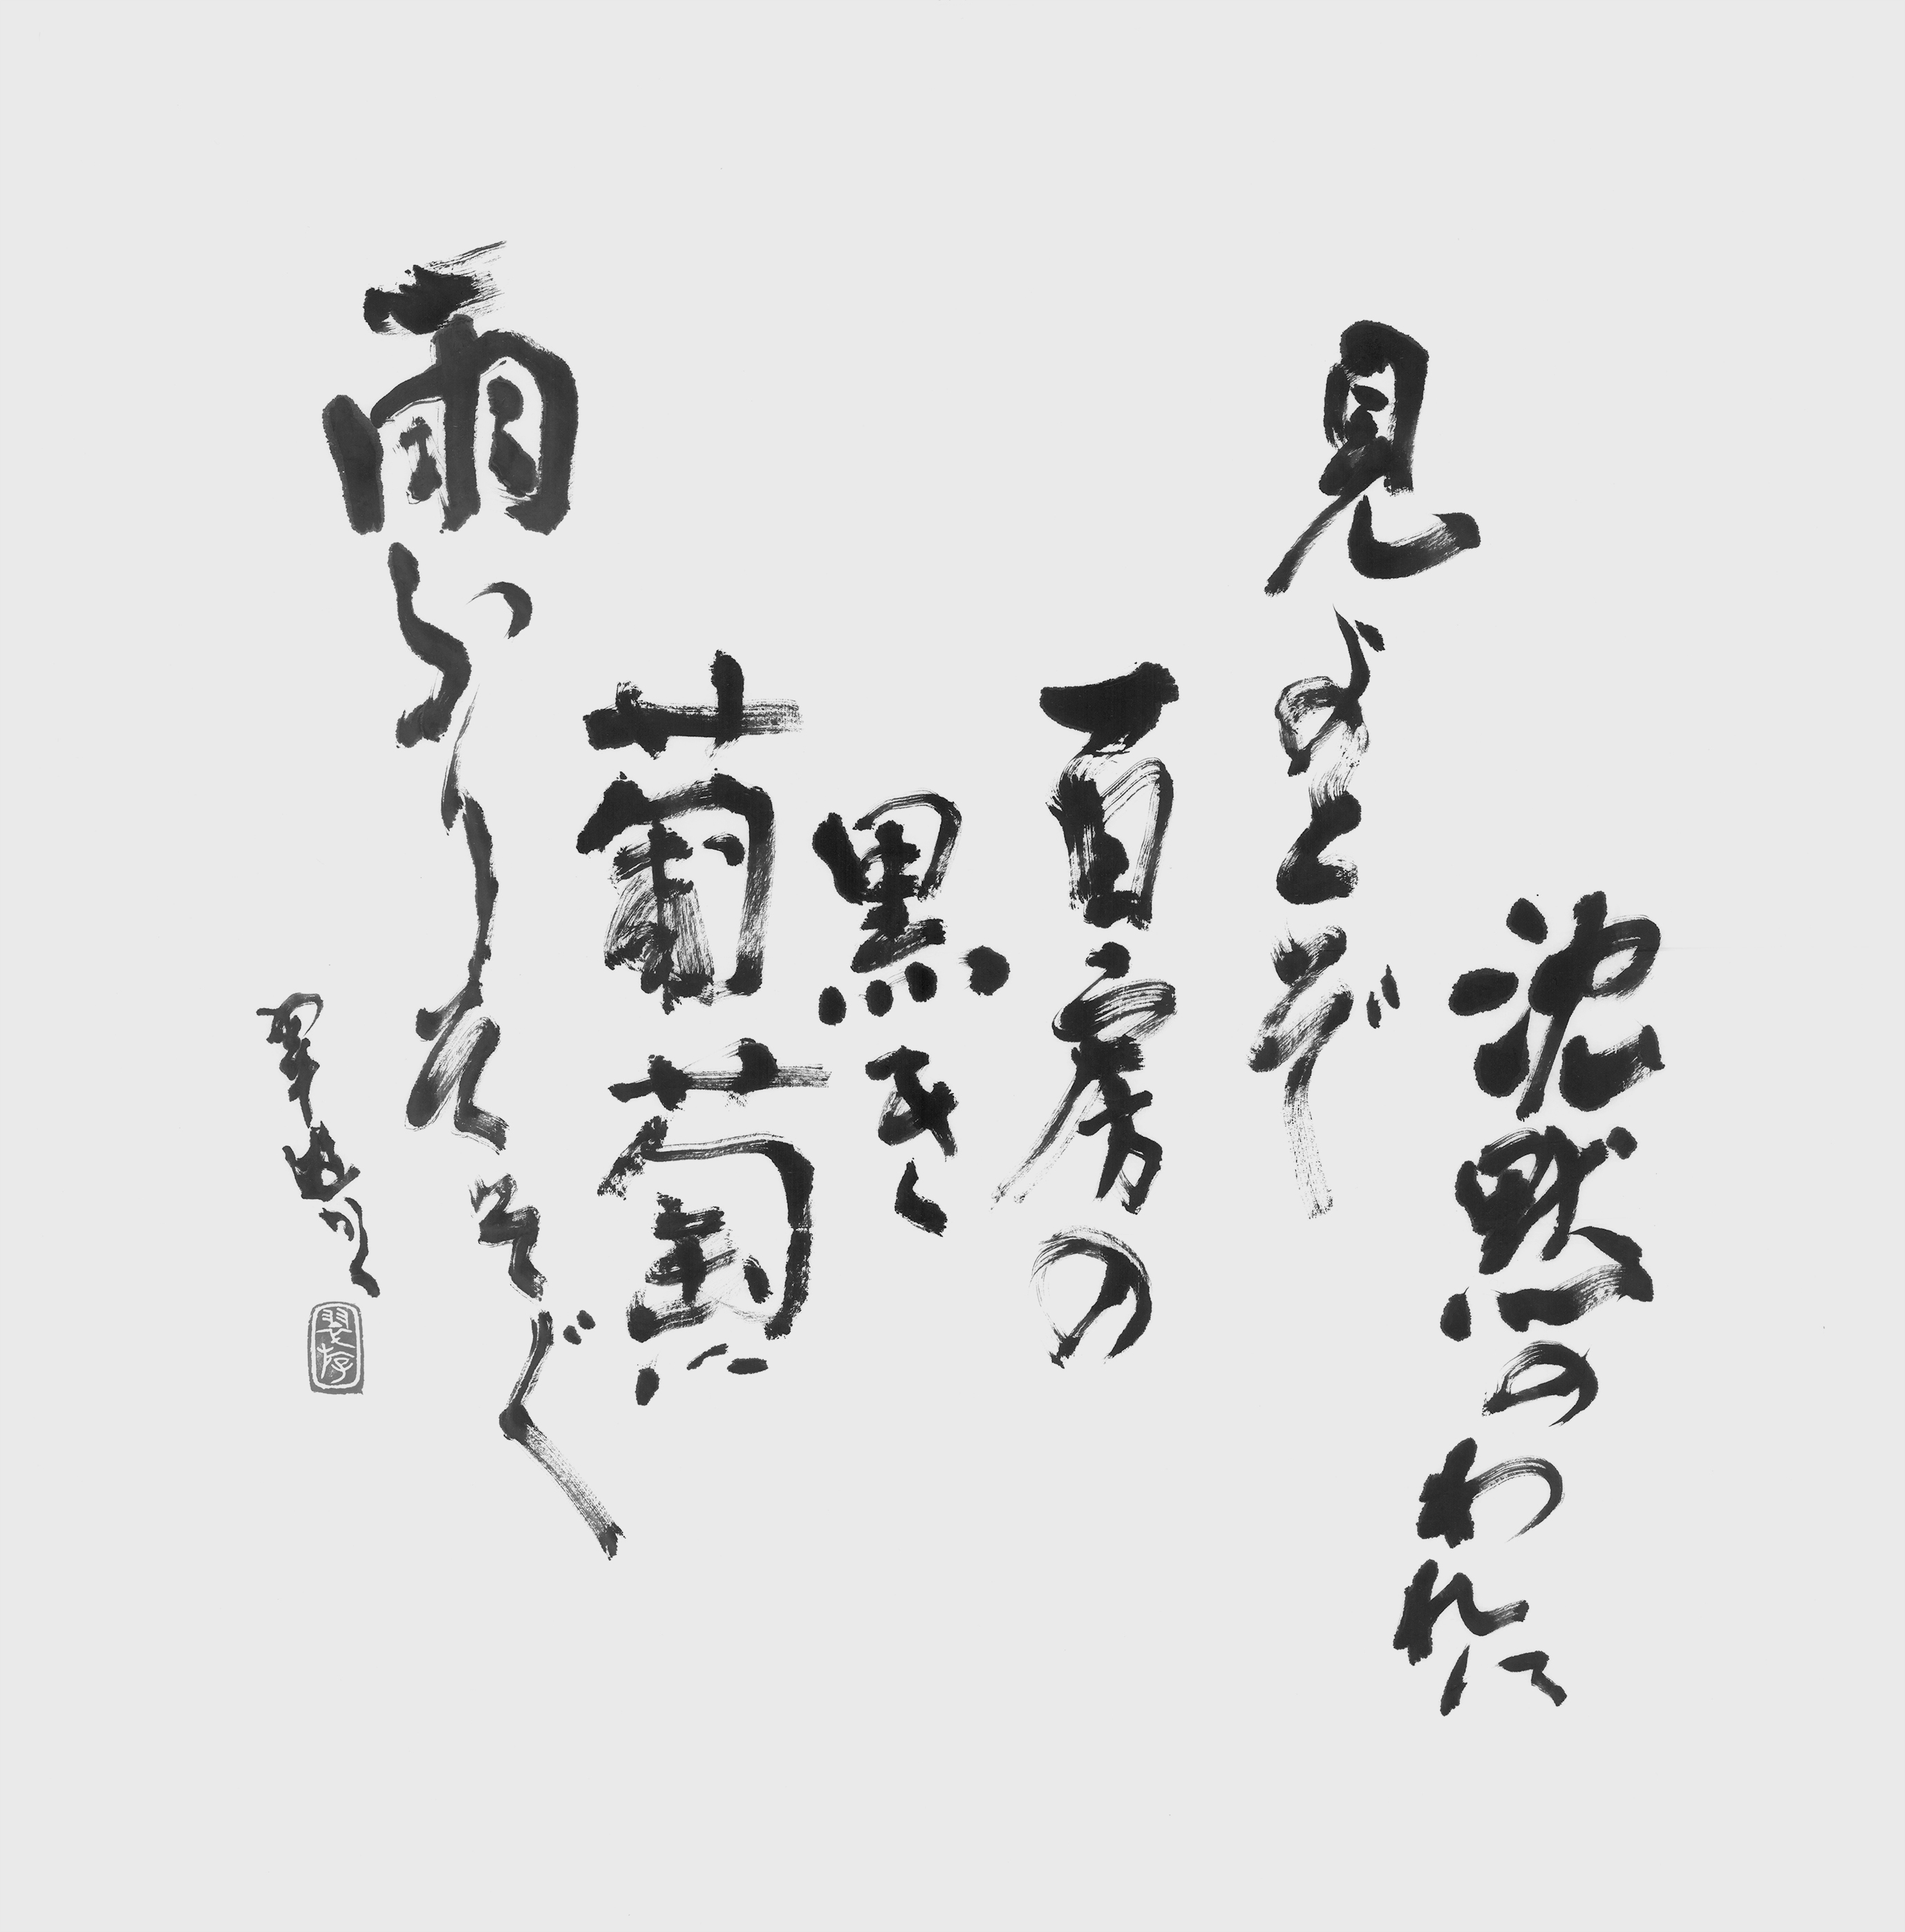 沈黙のわれに
見よとぞ
百房の
黒き
葡萄に
雨ふりそそぐ